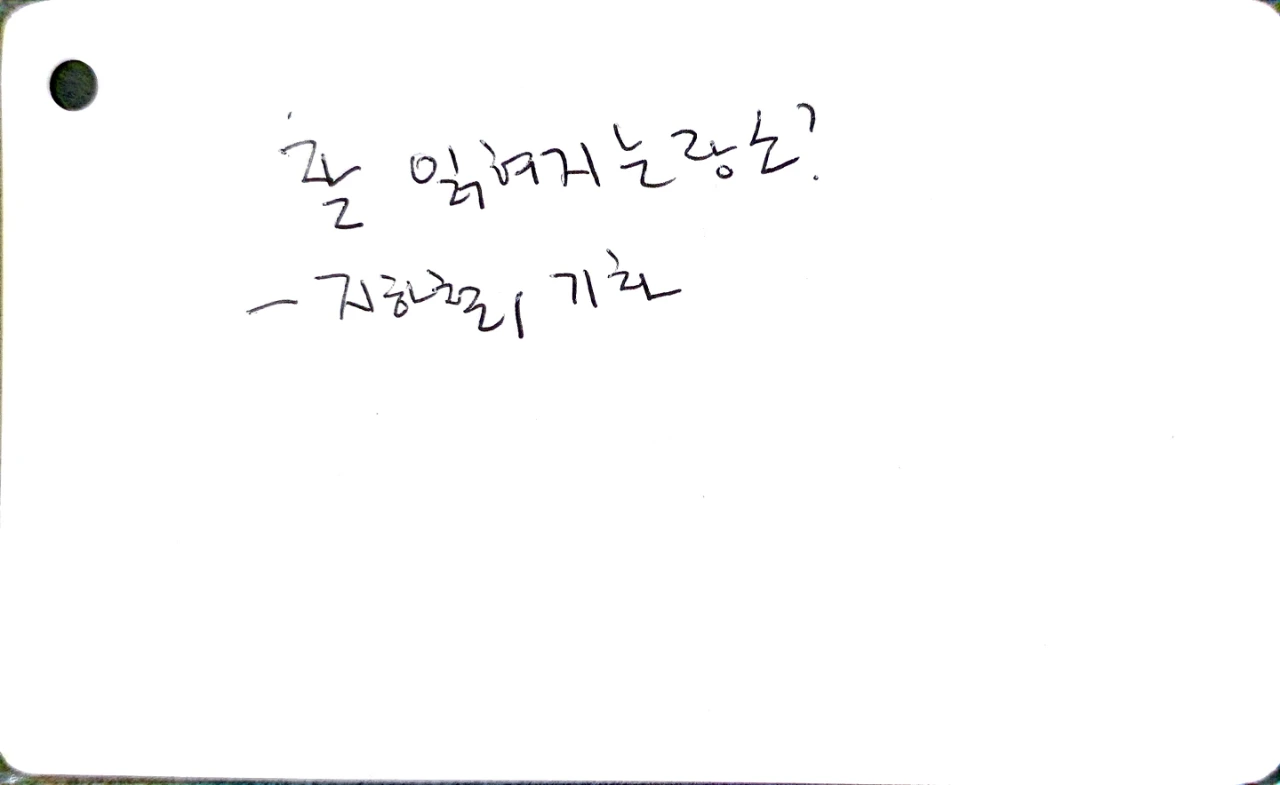 잘 읽혀지는 장소?
- 지하철, 기차